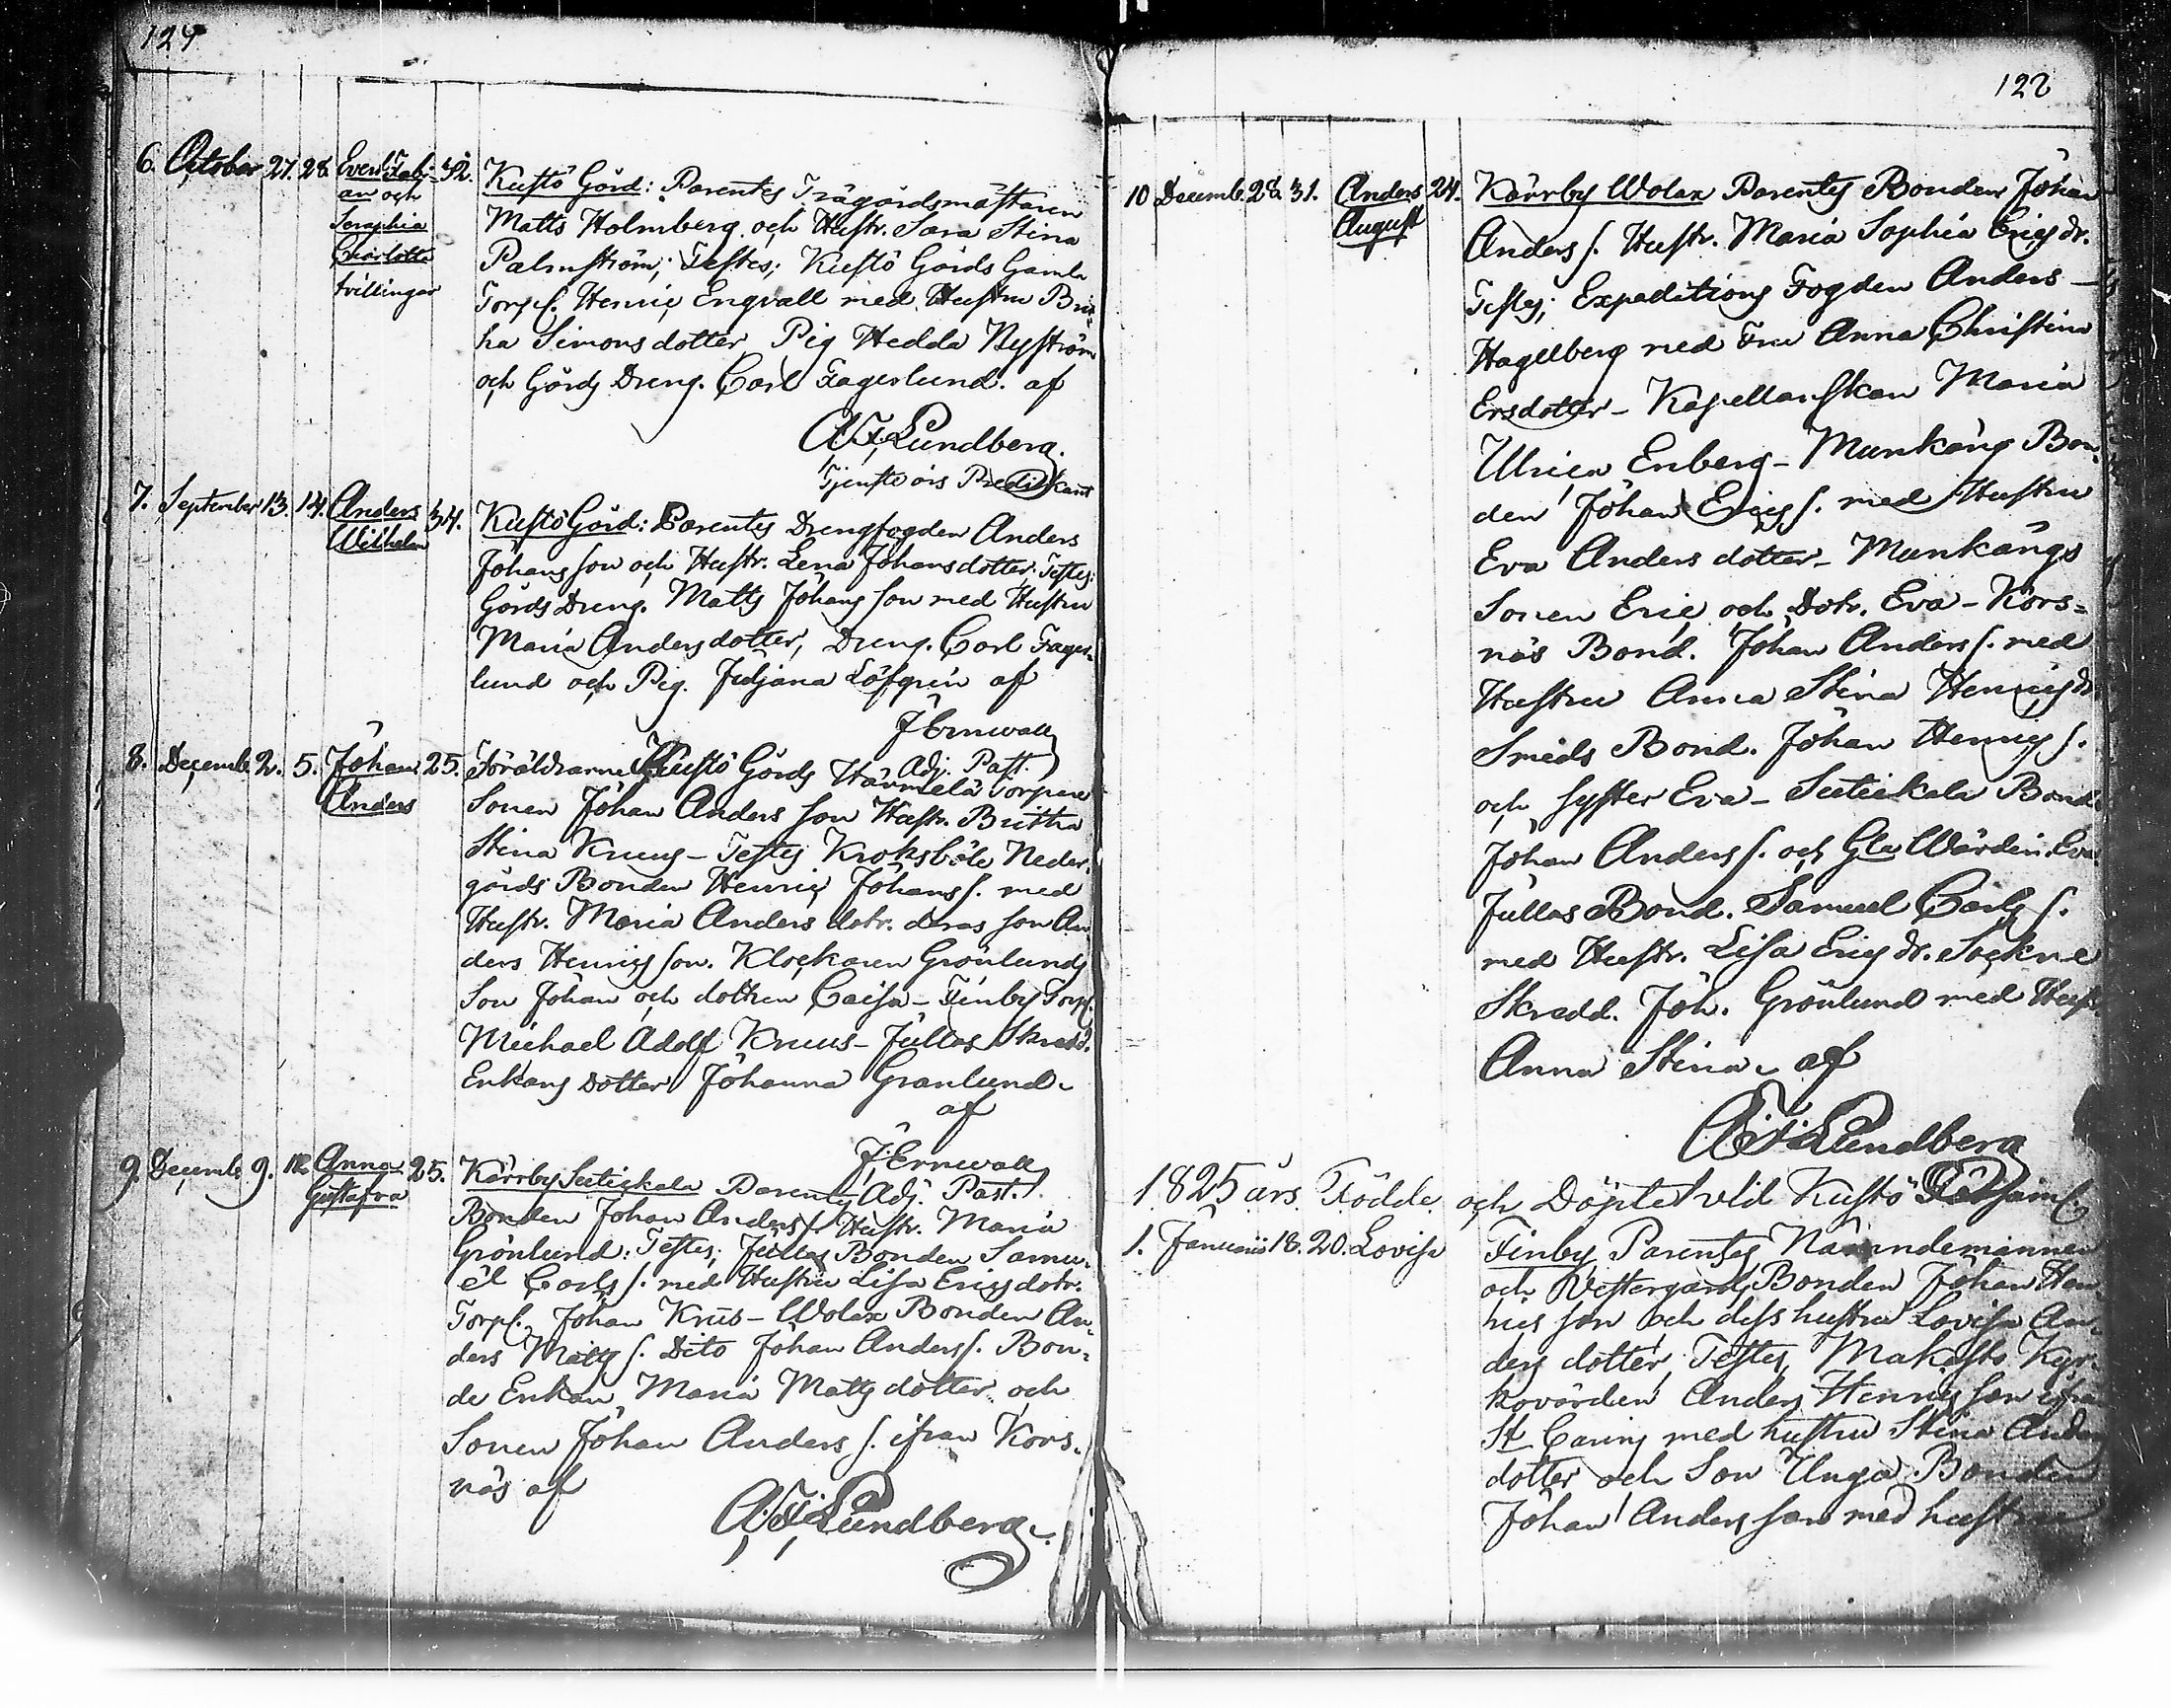 124
6. October 27. 28. Evert Fabi- 32. Kustö Gård: Parentes Trägårdsmästaren
an och Matts Holmberg och Hustr. Sara Stina
Seraphia Palmström; Testes; Kustö Gårds Gamla
Charlotta Torps. Henric Engvall med Hustru Brit-
tvillingar ha Simons dotter Pig Hedda Nyström
och Gårds Dreng. Carl Fagerlund. af
A.F. Lundberg.
Tjenste års Predikant
7. September 13. 14. Anders 34. Kustö Gård: Parentes Drengfogden Anders
Wilhelm Johans son och Hustr. Lena Johansdotter. Testes:
Gårds Dreng. Matts Johans son med Hustru
Maria Anders dotter, Dreng. Carl Fager-
lund och Pig. Juljana Löfgrén af
J Ernwall
Adj. Past.
8. Decemb. 2. 5. Johan 25. Föräldrarne Kustö Gårds Härmälä Torpare
Anders Sonen Johan Anders son Hustr. Britha
Stina Kruus - Testes Kroksböle Neder-
gårds Bonden Henric Johans s. med
Hustr. Maria Anders dotr. deras son An
ders Henrics son. Klockaren Grönlunds
Son Johan och dottren Caisa - Finby Torp.
Michael Adolf Kruus - Jullas Skradd.
Enkans Dotter Johanna Granlund.
af
J. Ernwall
Adj. Past.
9. Decemb. 9. 12. Anna 25. Kärrby Sutickala Parentes
Gustafva Bonden Johan Anders s. Hustr. Maria
Grönlund: Testes; Jullas Bonden Samu-
el Carls s. med Hustru Lisa Erics dotr.
Torps. Johan Krus - Wolax Bonden An-
ders Matts s. Dito Johan Anders s. Bon-
de Enkan Maria Matts dotter och
Sonen Johan Anders s. ifran Kors-
näs af
A.F. Lundberg.
122
10 Decemb. 28. 31. Anders 24. Kärrby Wolax Parentes Bonden Johan
August Anders s. Hustr. Maria Sophia Erics dr.
Testes; Expeditions Fogden Anders -
Hagelberg med Fru Anna Christina
Ersdotter - Kapellanskan Maria
Ulrica Enberg - Munkäng Bon-
den Johan Erics s. med Hustru
Eva Anders dotter - Munkängs
Sonen Eric och Dotr. Eva - Kors=
näs Bond. Johan Anders s. med
Hustru Anna Stina Henrics dr
Smeds Bond. Johan Henrics s.
och syster Eva - Sutickala Bond.
Johan Anders s. och Gla Wärdin. Eva
Jullas Bond. Samuel Carls s.
med Hustr. Lisa Erics dr. Sockne
Skradd. Joh. Grönlund med Hustr
Anna Stina. af
A.F. Lundberg
1825 års Födde och Döpte vid Kustö Församl.
1. Januarii 18. 20. Lovisa Finby Parentes Nämndemannen
och Vestergårds Bonden Johan Hen
rics son och dess hustru Lovisa An-
ders dotter, Testes, Makasto Kyr-
kovärden Anders Henrics son ifrån
St Carins med hustru Stina Anders
dotter och Son Unga Bonden
Johan Anders son med hustru